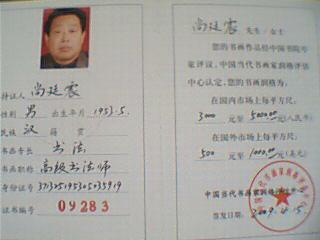 持证人 尚廷震
性别 男 出生年月 1953.5.
民族 汉 籍贯
书画专长 书法
书画职称 高级书法师
身份证号
证书编号 09283
尚廷震 先生/女士
您的书画作品经中国书院专
家评议,中国当代书画家润格评估
中心认定,您的书画润格为:
在国内市场上每平方尺:
3000 元至 50000 元(人民币)
在国外市场上每平方尺:
500 元至 10000 元(美元)
中国当代书画家润格评估中心
签发日期: 2009.4.15